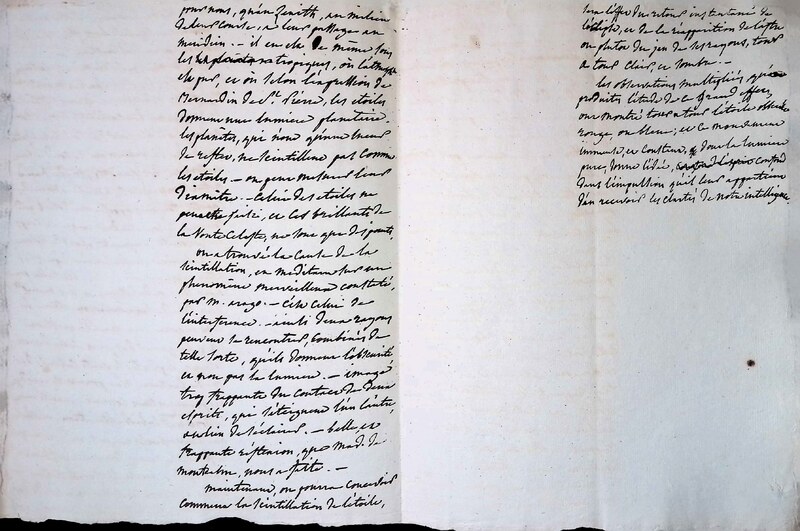 pour nous, qu'au Zénith, au milieu
de leur course, à leur passage au
méridien. - il en est de même sous
les tropiques, où l'atmosp
est pur, et où selon l'expression de
Bernardin de St. Pierre, les étoiles
donnent une lumière planétaire.
les planètes, qui n'ont qu'une lueur
de reflet, ne scintillent pas comme
les étoiles - on peut mesurer leur
diamètre. - Celui des étoiles ne
peut être fixé, et ces brillants de
la Voute Celeste, ne sont que des points.
on a trouvé la Cause de la
scintillation, en méditant sur un
phénomène merveilleux constaté,
par M. arago. - C'est celui de
l'interférence. - ainsi deux rayons
peuvent se rencontrer, combinés de
telle sorte, qu'ils donnent l'obscurité
et non pas la lumière. - image
trop frappante du Contact de deux
esprits, qui s'éteignent l'un l'autre,
au lieu de s'éclairer. - belle, et
frappante réflexion, que Mad. de
nous a faite. -
maintenant, on pourra Concevoir
comment la scintillation de l'étoile,
sera l'effet du retour instantané de
l'éclipse, et de la réapparition de l'astre
ou plutot du jeu de ses rayons, tour
à tour clair, et sombre. -
les observations multipliées qu'a
produites l'étude de ce grand effet,
ont montré tour à tour l'étoile
rouge, ou bleue; et ce mouvement
immense, et constant, dont la lumière
pure, donne l'idée,
dans l'impulsion qu'il leur appartient
d'en recevoir les clartés de notre intelligence